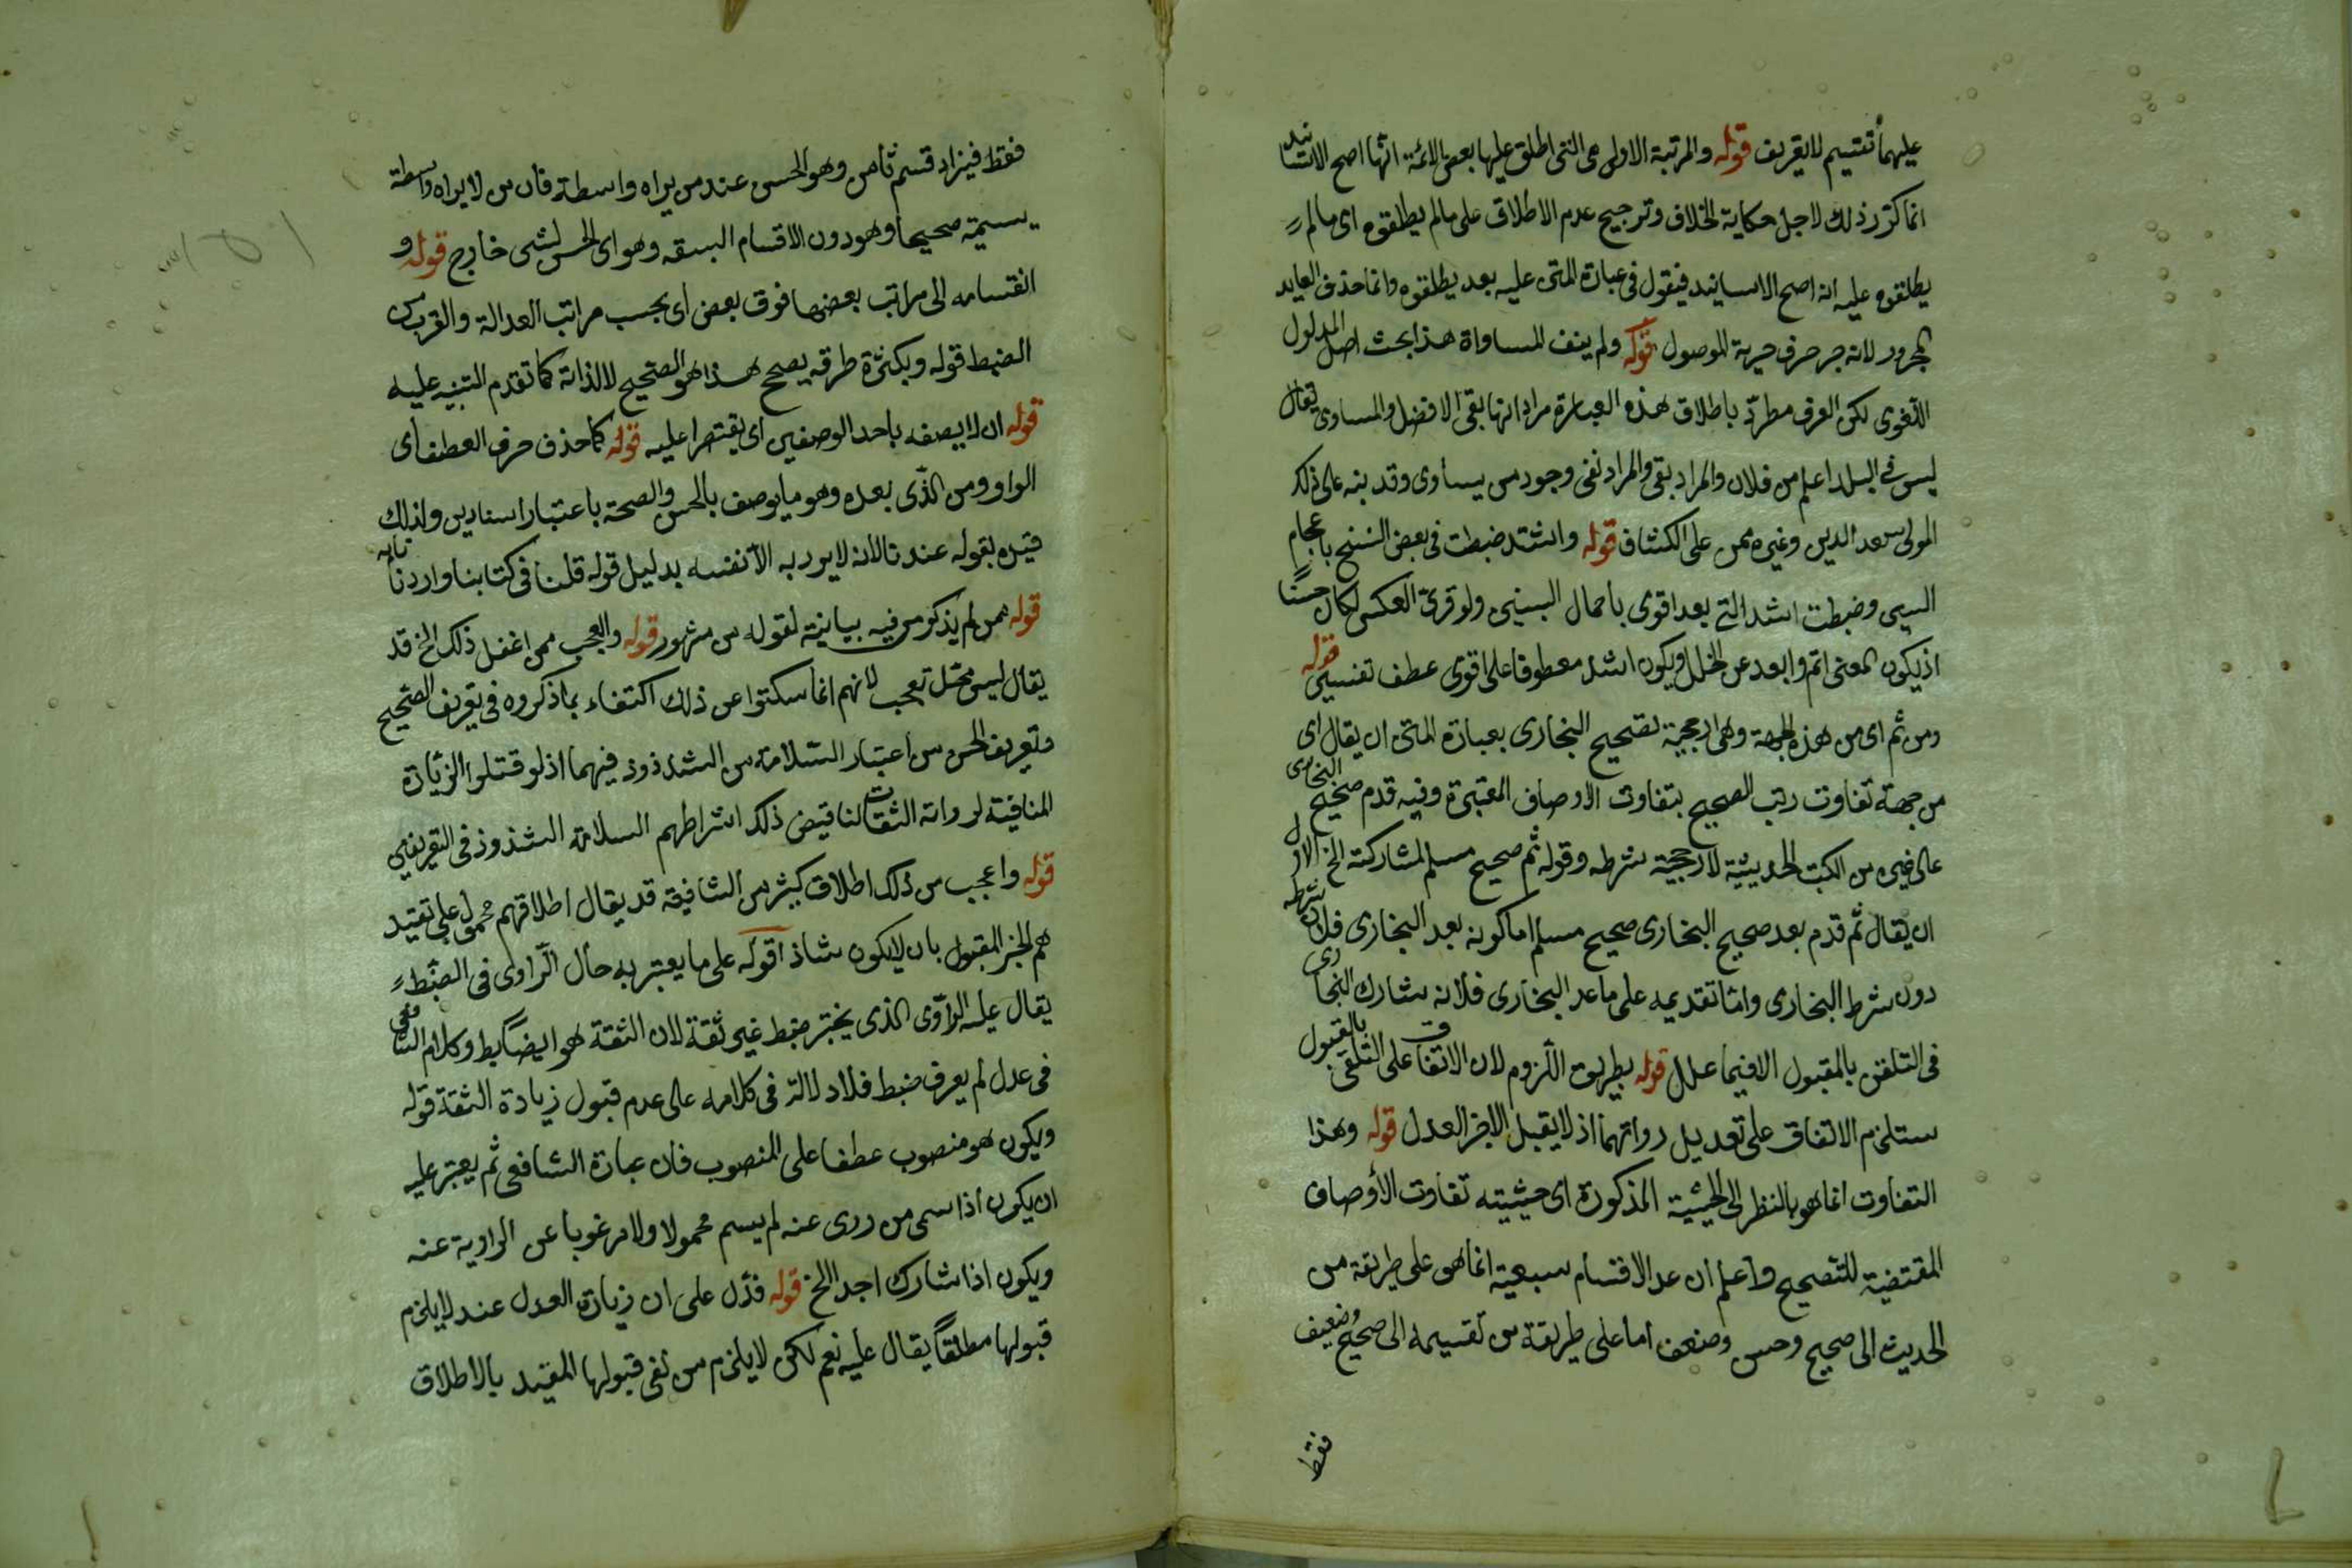 عليهما تقسيم لا تعريف قوله والمرتبة الاولى هى التى اطلق عليها بعض الائمة انها اصح الاسانيد
انما كرر ذلك لاجل حكاية الخلاف وترجيح عدم الاطلاق على مالم يطلقوه اى مالم
يطلقوه عليه انه اصح الاسانيد فيقول فى عبارة المتن عليه بعد يطلقوه وانما حذف العايد
المجرور لانه جر حرف جر به الموصول قوله ولم ينف المساواة هذا بحث اصل المدلول
اللغوى لكن العرف مطرد باطلاق هذه العبارة مرادا نها بقى الافضل والمساوى يقال
ليس فى البلد اعلم من فلان والمراد بقى والمراد نفى وجود من يساوى وقد بنه على ذلك
المولى سعد الدين وغيره ممن على الكشاف قوله واشد ضبطت فى بعض النسخ باعجام
السين وضبطت اشد التى بعد اقوى باهمال السين ولو قرئ العكس لكان حسنا
اذ يكون المعنى اتم وابعد عن الخلل ويكون اشد معطوفا على اقوى عطف تفسيرى قوله
ومن ثم اى من هذه الجهة وهى ارجحية تصحيح البخارى بعبارة المتن ان يقال اى
من جهة تفاوت رتب الصحيح بتفاوت الاوصاف المعتبرة وفيه قدم صحيح البخارى
على غيره من الكتب الحديثية لارجحية شرطه وقوله ثم صحيح مسلم لمشاركته الخ الاول
ان يقال ثم قدم بعد صحيح البخارى صحيح مسلم اما كونه بعد البخارى فلان شرطه
دون شرط البخارى واما تقديمه على ما عدا البخارى فلانه شارك البخارى
فى التلقى بالمقبول الا فيما علل قوله بطريق اللزوم لان الاتفاق على التلقى بالقبول
ستلزم الاتفاق على تعديل رواتهما اذ لا يقبل الا خبر العدل قوله وهذا
التفاوت انما هو بالنظر الى الحيثية المذكورة اى حيثيته تفاوت الأوصاف
المقتضية للتصحيح واعلم ان عد الاقسام سبعية انما هى على طريقة من
الحديث الى صحيح وحسن وضعف اما على طريقة من تقسيمه الى صحيح وضعيف
فقط
فقط فيزاد قسم ثامن وهو الحسن عند من يراه واسطة فان من لا يراه واسطة
يسميه صحيحا وهو دون الاقسام السبقه وهو اى الحسن لشى خارج قوله و
انقسامه الى مراتب بعضها فوق بعض اى بحسب مراتب العدالة والقرب من
الضبط قوله وبكثرة طرقه يصحح هذا هو الصحيح لا لذاته كما تقدم التنبيه عليه
قوله ان لا يصفه باحد الوصفين اى يقتصرا عليه قوله كما حذف حرف العطف اى
الواو ومن الذى بعده وهو ما يوصف بالحسن والصحة باعتبار اسنادين ولذلك
قيده بقوله عندنا لانه لا يرد به الا نفسه بدليل قوله قلنا فى كتابنا واردنا بابه
قوله ممن لم يذكر من فيه بيانية لقوله من مشهور قوله والعجب ممن اغفل ذلك الخ قد
يقال ليس محل تعجب لانهم انما سكتوا عن ذلك اكتفاء بما ذكروه فى تعريف الصحيح
وتعريف الحسن من اعتبار السلامة من الشذوذ فيهما اذ لو قتلوا الزيادة
المنافية لرواته الثقات لنا قيض ذلك اشراطهم السلامة الشذوذ فى التعريفين
قوله واعجب من ذلك اطلاق كثير من الشافعية قد يقال اطلاقهم محمول على تقيد
هم الخبر المقبول بان لا يكون شاذا قوله على ما يعتبر به حال الراوى فى الضبط
يقال عليه الراوى الذى يختبر ضبط غير ثقة لان الثقة هو الضابط وكلام الشافعى
فى عدل لم يعرف ضبط فلا دلالة فى كلامه على عدم قبول زيادة الثقة قوله
ويكون هو منصوب عطفا على المنصوب فان عبارة الشافعى ثم يعتبر عليه
ان يكون اذا سمى من روى عنه لم يسم مجهولا ولا مرغوبا عن الراوية عنه
ويكون اذا شارك احدا الخ قوله فدل على ان زيادة العدل عند لا يلزم
قبولها مطلقا يقال عليه نعم لكن لا يلزم من نفى قبولها المقيد بالاطلاق